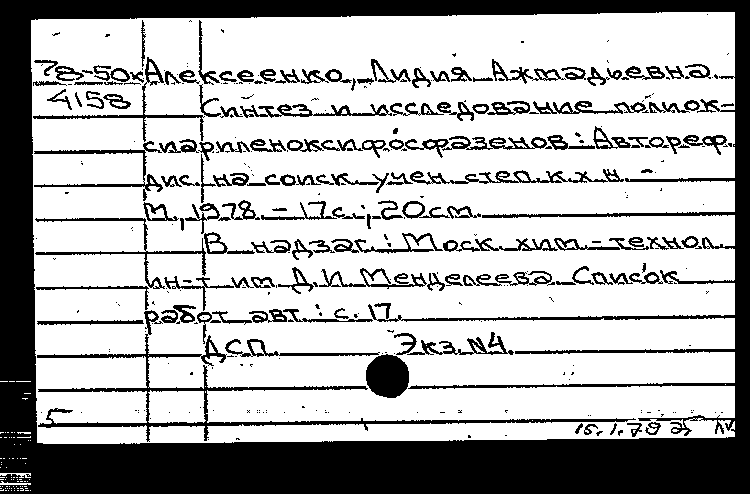 78-50к Алексеенко, Лидия Ахмадьевна
4158 Синтез и исследование полиок-
сиариленоксифосфазенов : Автореф.
дис. на соиск. учен. степ. к. х. н. -
М., 1978. - 17с.; 20см.
В надзаг. : Моск. хим.-технол.
ин-т им. Д. И. Менделеева. Список
работ авт. : с. 17.
ДСП. Экз. N4.
5